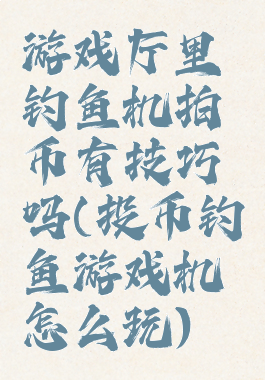 游戏厅里
钓鱼机拍
币有技巧
吗(投币钓
鱼游戏机
怎么玩)